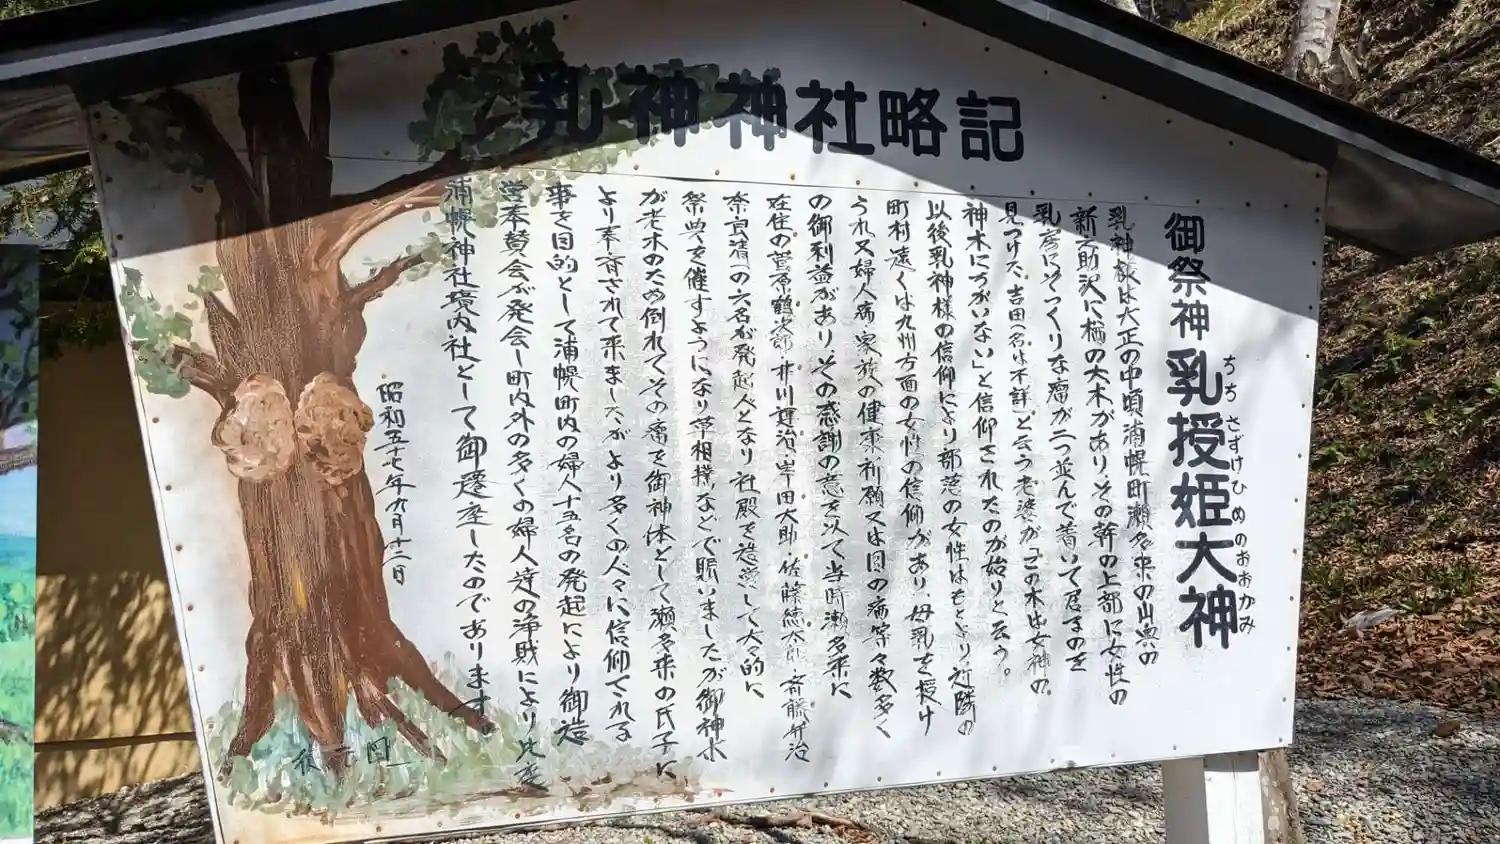 乳神神社略記
御祭神 乳授姫大神
ちちさずけひめのおおかみ
乳神様は大正の中頃浦幌町瀬多来の山奥の
新助沢に楢の大木がありその幹の上部に女性の
乳房にそっくりな瘤が二つ並んで着いて居るのを
見つけた、吉田(名は不詳)と云う老婆が「この木は女神の
神木にちがいない」と信仰されたのが始りと云う。
以後乳神様の信仰により部落の女性はもとより近隣の
町村遠くは九州方面の女性の信仰があり、母乳を授け
られ又婦人病・家族の健康祈願又は目の病等々数多く
の御利益がありその感謝の意を以て当時瀬多来に
在住の菅原鶴治郎・井川運治・岸田大助・佐藤徳太郎・斉藤弁治
奈良清一の六名が発起人となり社殿を造営して大々的に
祭典を催すようになり草相撲などで賑いましたが御神木
が老木のため倒れてその瘤を御神体として瀬多来の氏子に
より奉斉されて来ましたがより多くの人々に信仰される
事を目的として浦幌町内の婦人十五名の発起により御造
営奉賛会が発会し町内外の多くの婦人達の浄財により此度
浦幌神社境内社として御遷座したのであります。
昭和五十七年九月十二日